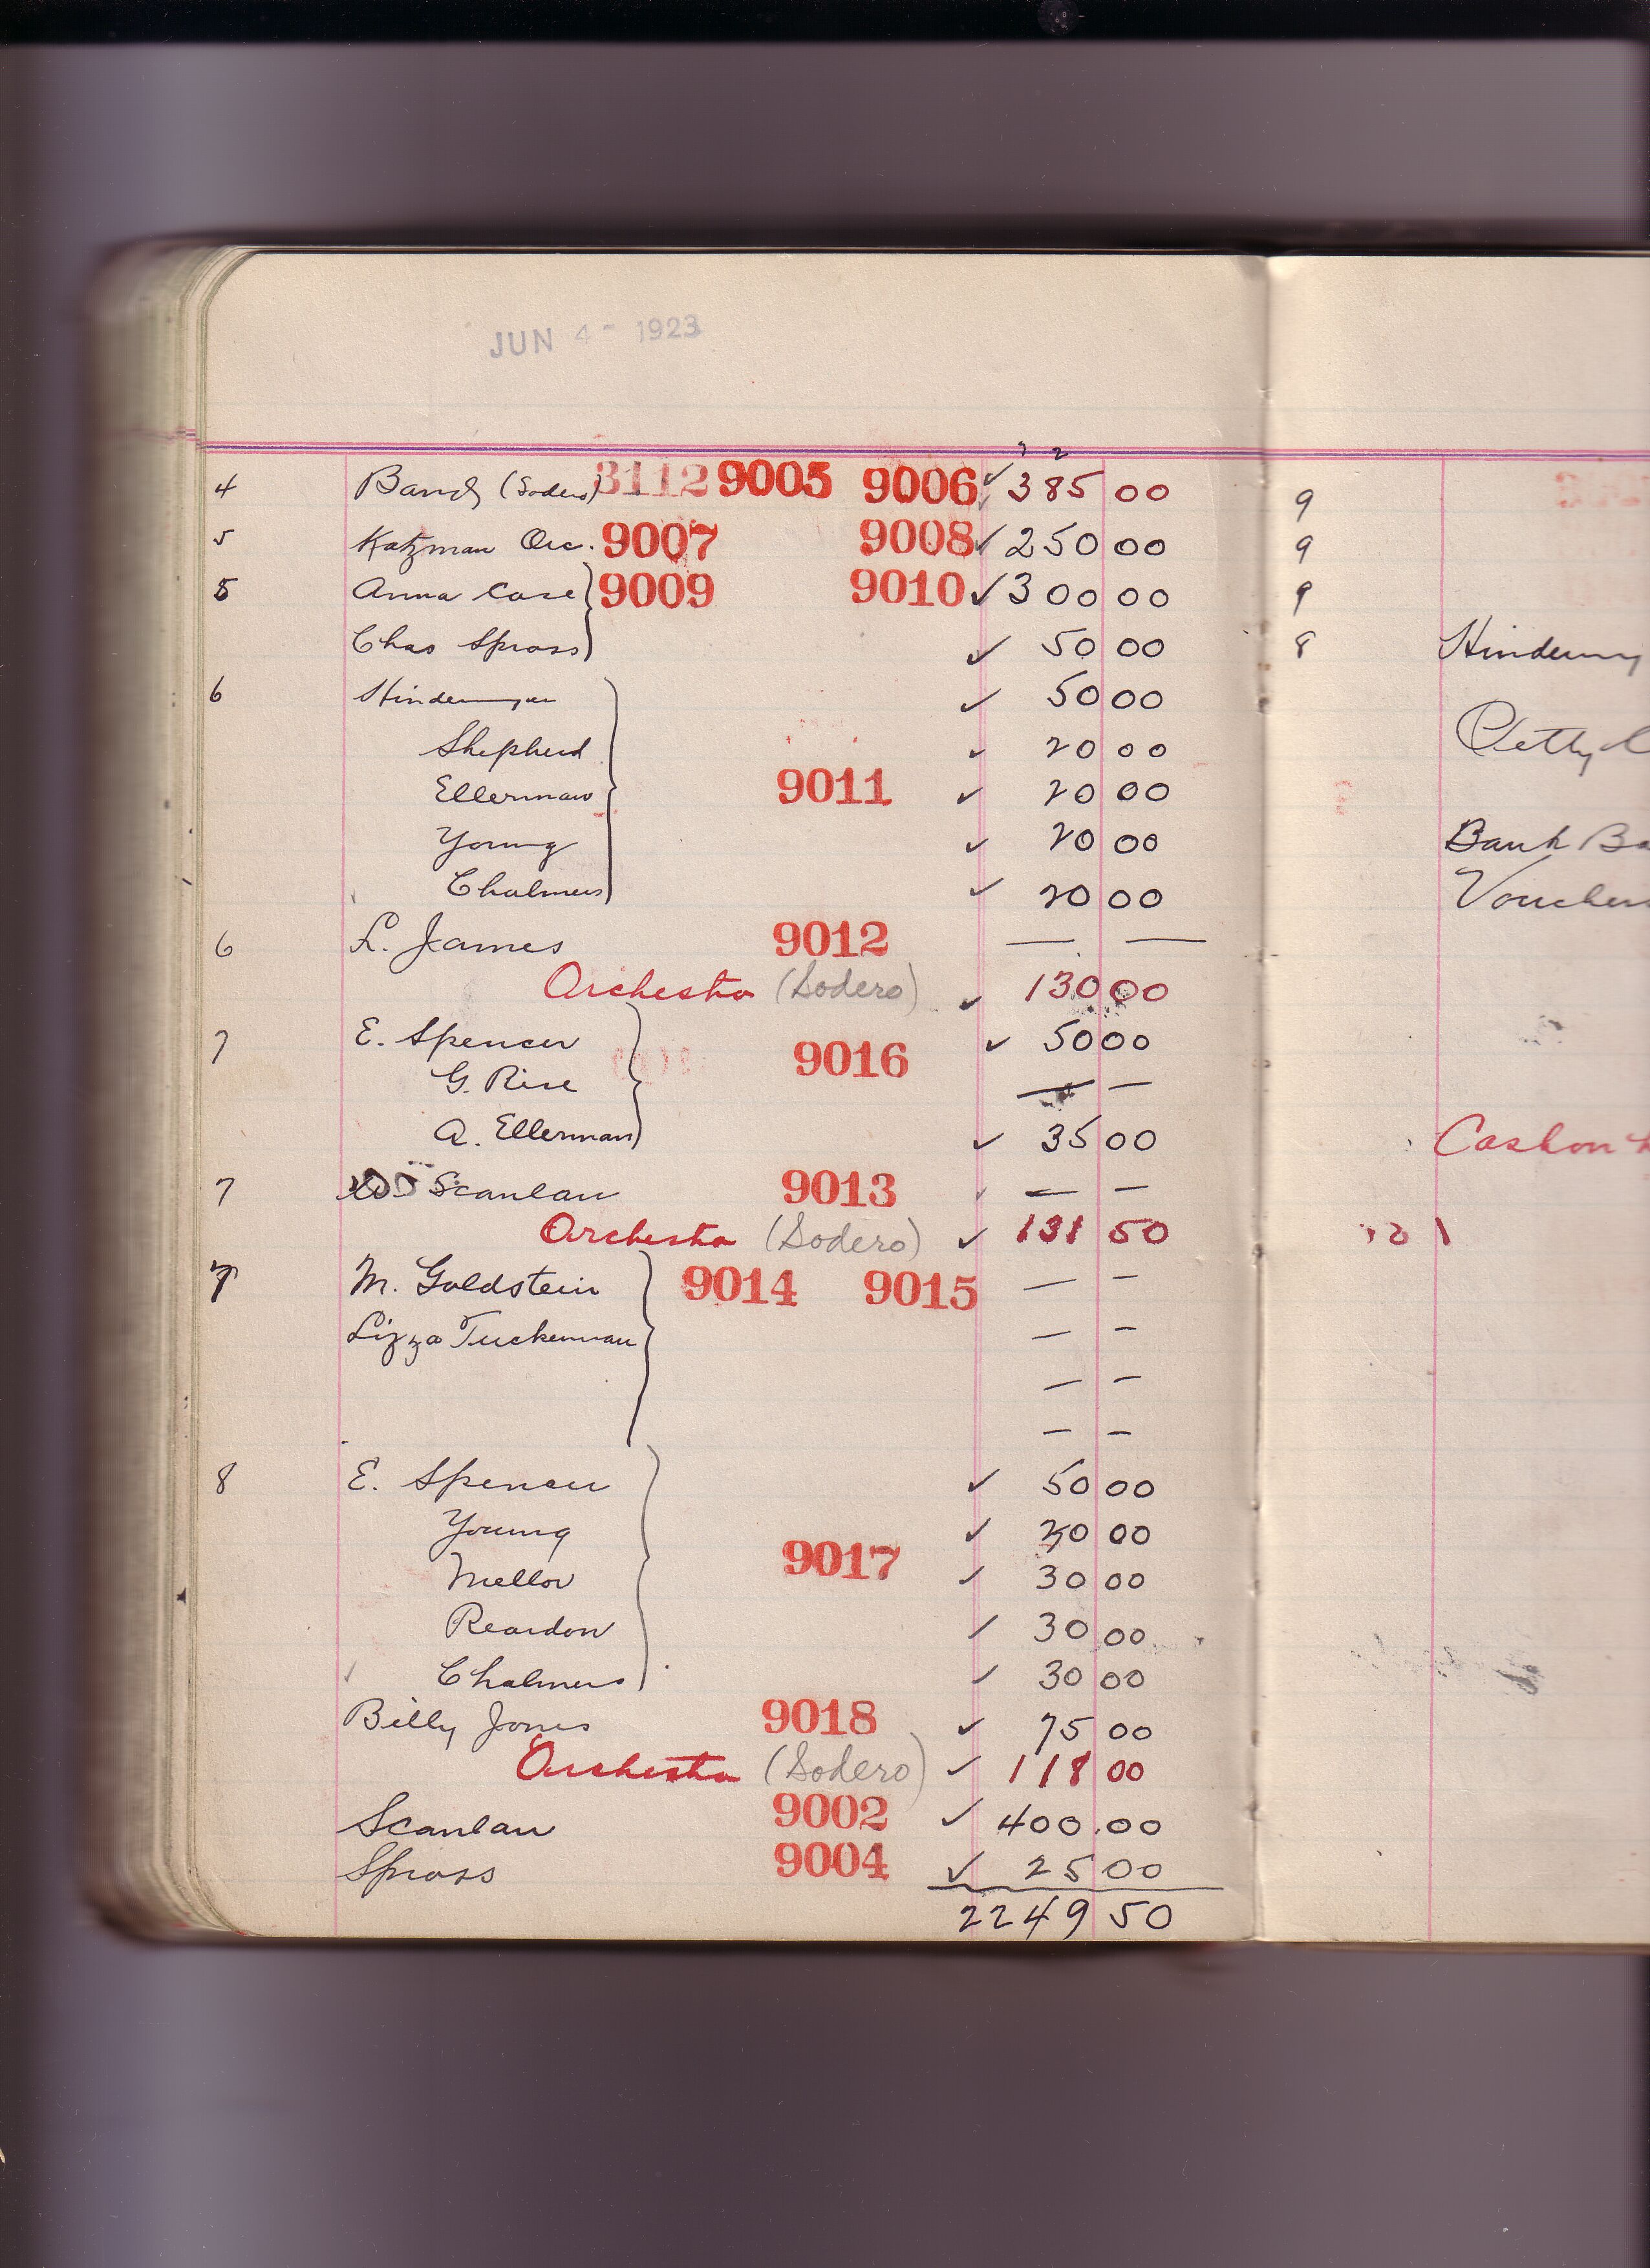 JUN 4 - 1923
4 Band (Sodero) 3112 9005 9006 ✓ 385 00
5 Katzman Orc. 9007 9008 ✓ 250 00
5 Anna Case 9009 9010 ✓ 300 00
Chas Spross ✓ 50 00
6 Hindermyer ✓ 50 00
Shepherd ✓ 20 00
Ellerman 9011 ✓ 20 00
Young ✓ 20 00
Chalmers ✓ 20 00
6 L. James 9012 — —
Orchestra (Sodero) ✓ 130 00
7 E. Spencer ✓ 50 00
G. Rise 9016 — —
A. Ellerman ✓ 35 00
7 Scanlan 9013 — —
Orchestra (Sodero) ✓ 131 50
7 M. Goldstein 9014 9015 — —
Lizza Tuckerman — —
— —
— —
8 E. Spencer ✓ 50 00
Young ✓ 30 00
Mellor 9017 ✓ 30 00
Reardon ✓ 30 00
Chalmers ✓ 30 00
Billy Jones 9018 ✓ 75 00
Orchestra (Sodero) ✓ 118 00
Scanlan 9002 ✓ 400.00
Spross 9004 ✓ 25 00
2249 50
9
9
9
8 Hindermy
Petty
Bank Ba
Voucher
Cash on